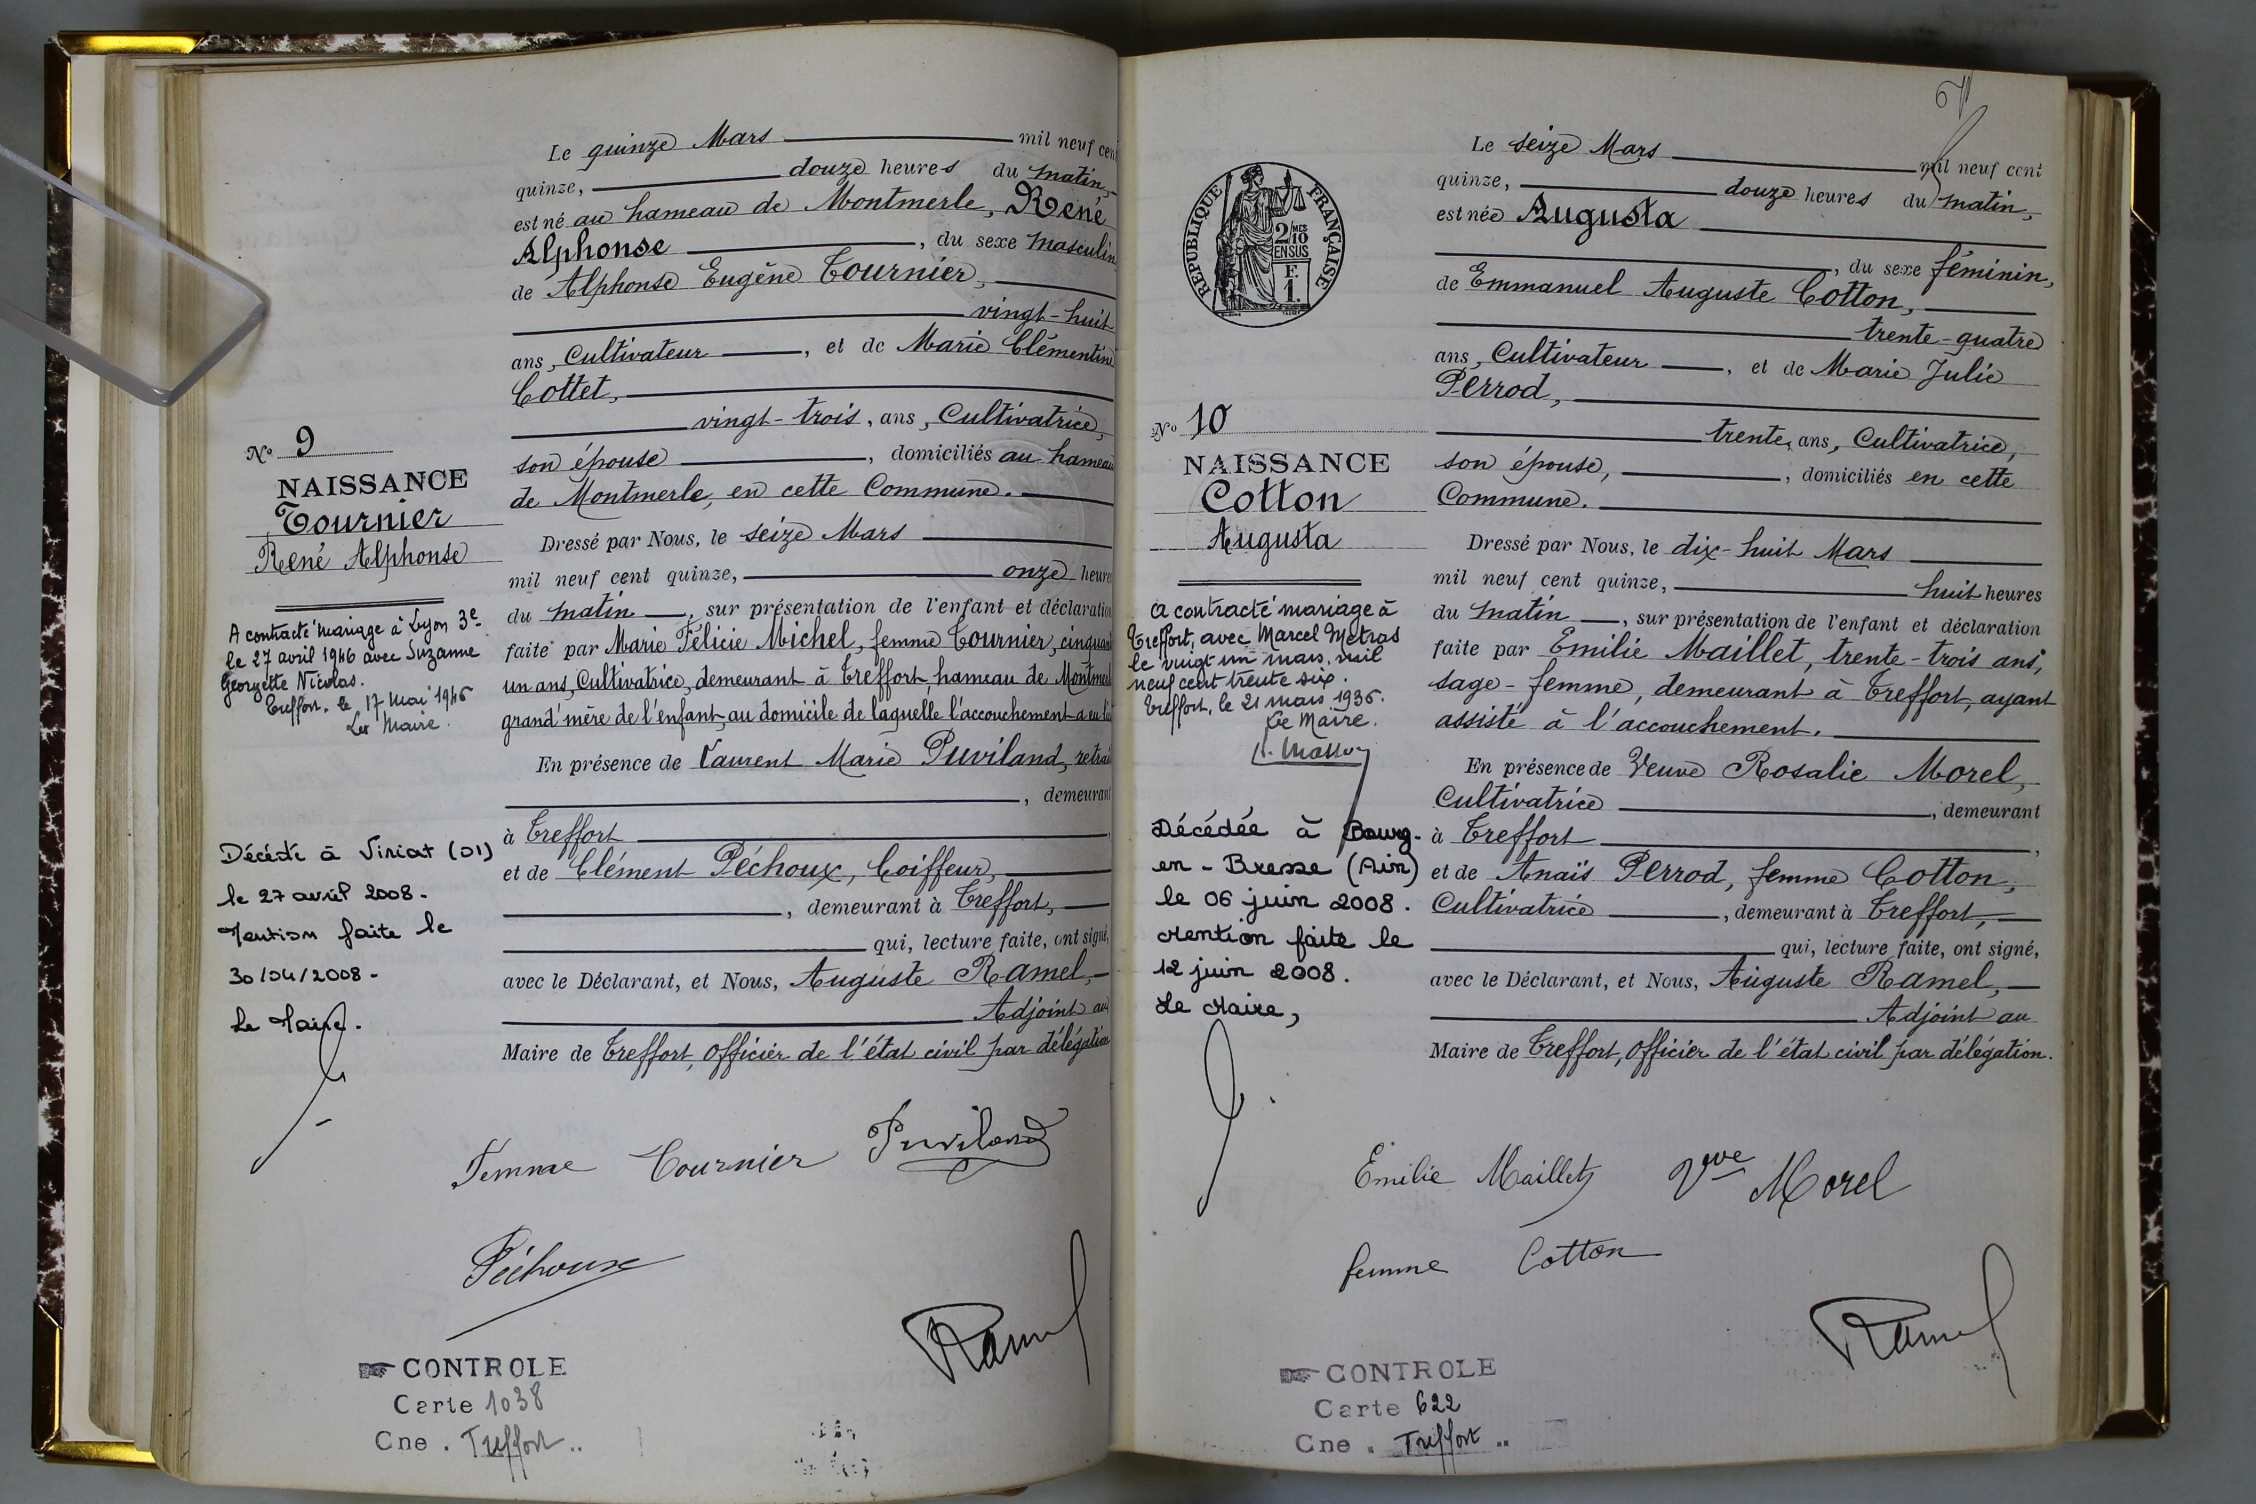 Le quinze Mars mil neuf cent
quinze, douze heures du matin,
est né au hameau de Montmerle, René
Alphonse, du sexe masculin
de Alphonse Eugène Tournier,
vingt-huit
ans, Cultivateur, et de Marie Clémentine
Cottet,
vingt-trois, ans, Cultivatrice,
son épouse, domiciliés au hameau
de Montmerle, en cette Commune.
Dressé par Nous, le seize Mars
mil neuf cent quinze, onze heures
du matin, sur présentation de l'enfant et déclaration
faite par Marie Félicie Michel, femme Tournier, cinquante
un ans, Cultivatrice, demeurant à Treffort, hameau de Montmerle
grand'mère de l'enfant, au domicile de laquelle l'accouchement a eu lieu
En présence de Laurent Marie Puviland, retrai
, demeurant
à Treffort
et de Clément Péchoux, Coiffeur,
, demeurant à Treffort,
qui, lecture faite, ont signé,
avec le Déclarant, et Nous, Auguste Ramel,
Adjoint au
Maire de Treffort, officier de l'état civil par délégation
N° 9
NAISSANCE
Tournier
René Alphonse
A contracté mariage à Lyon 3e
le 27 avril 1946 avec Suzanne
Georgette Nicolas.
Treffort, le 17 Mai 1946
Le Maire.
Décédé à Viriat (01)
le 27 avril 2008-
Mention faite le
30/04/2008-
Le Maire.
Femme Tournier Puviland
Péchoux
Ramel
CONTROLE
Carte 1038
Cne. Treffort..
Le seize Mars mil neuf cent
quinze, douze heures du matin,
est née Augusta
, du sexe féminin,
de Emmanuel Auguste Cotton,
trente-quatre
ans, Cultivateur, et de Marie Julie
Perrod,
trente, ans, Cultivatrice,
son épouse, domiciliés en cette
Commune.
Dressé par Nous, le dix-huit Mars
mil neuf cent quinze, huit heures
du matin, sur présentation de l'enfant et déclaration
faite par Emilie Maillet, trente-trois ans,
sage-femme, demeurant à Treffort, ayant
assisté à l'accouchement.
En présence de Veuve Rosalie Morel,
Cultivatrice, demeurant
à Treffort,
et de Anaïs Perrod, femme Cotton,
Cultivatrice, demeurant à Treffort,
qui, lecture faite, ont signé,
avec le Déclarant, et Nous, Auguste Ramel,
Adjoint au
Maire de Treffort, officier de l'état civil par délégation.
RÉPUBLIQUE FRANÇAISE
2/10 MES
EN SUS
F.
1.
N° 10
NAISSANCE
Cotton
Augusta
a contracté mariage à
Treffort, avec Marcel Métras
le vingt un mars, mil
neuf cent trente six.
Treffort, le 21 mars 1936.
Le Maire.
Décédée à Bourg-
en-Bresse (Ain)
le 06 juin 2008.
Mention faite le
12 juin 2008.
Le Maire,
Emilie Maillet Vve Morel
femme Cotton
Ramel
CONTROLE
Carte 622
Cne. Treffort..